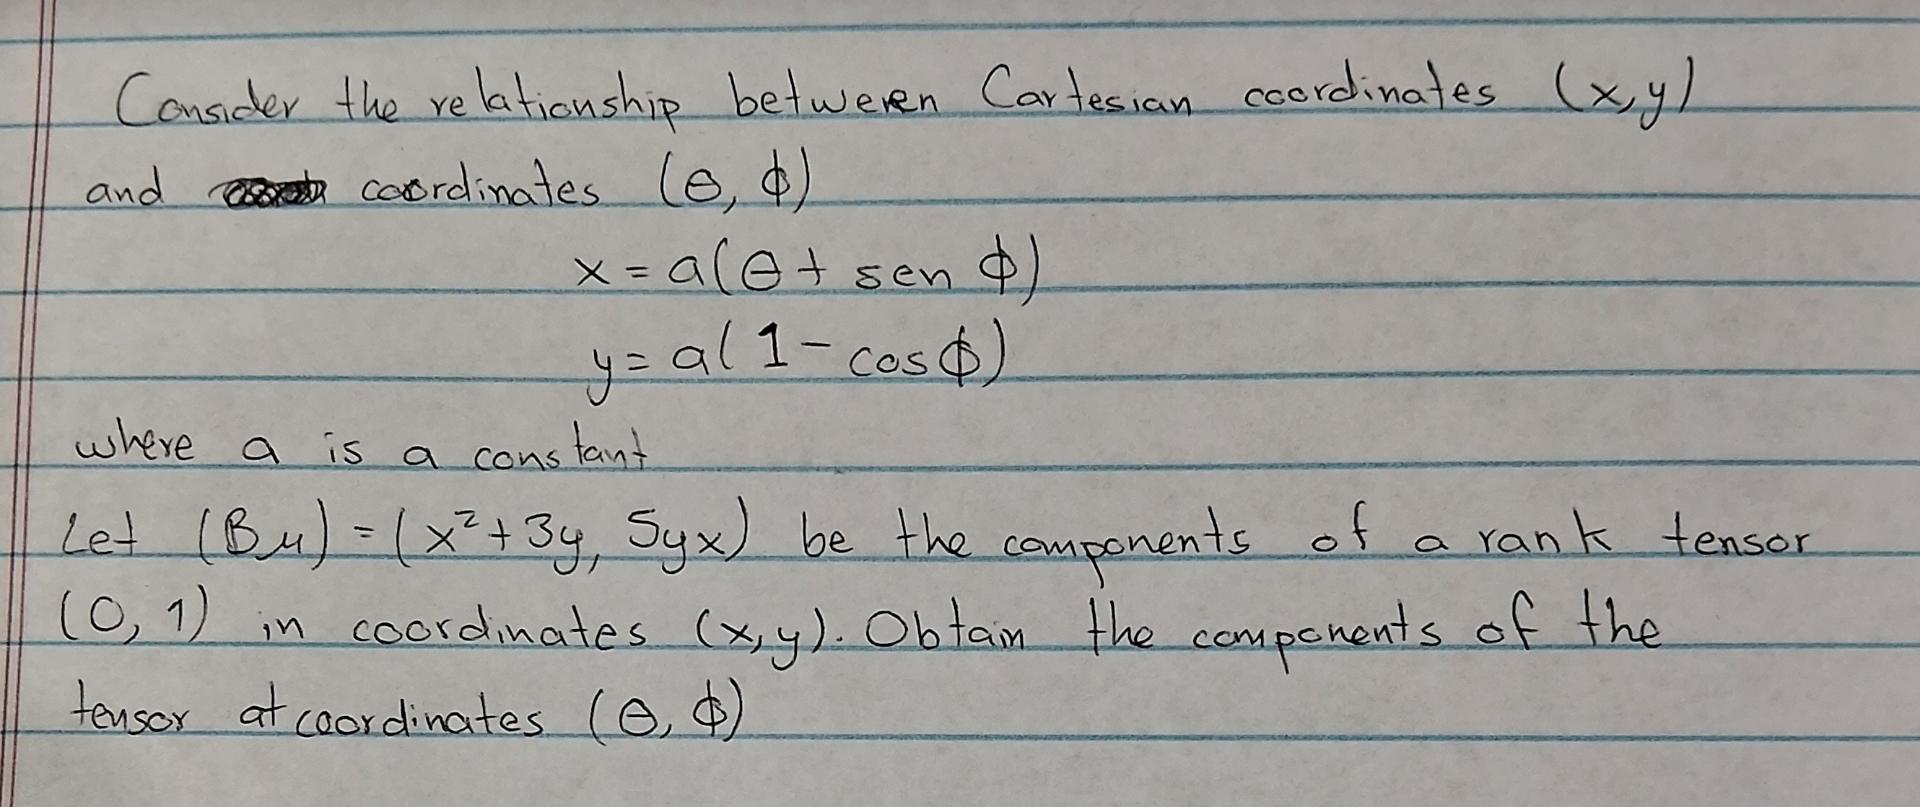 Consider the relationship between Cartesian coordinates (x,y)
and coordinates (θ, ϕ)
x = a(θ + sen ϕ)
y = a(1 - cos ϕ)
where a is a constant
Let (Bμ) = (x² + 3y, 5yx) be the components of a rank tensor
(0, 1) in coordinates (x,y). Obtain the components of the
tensor at coordinates (θ, ϕ)